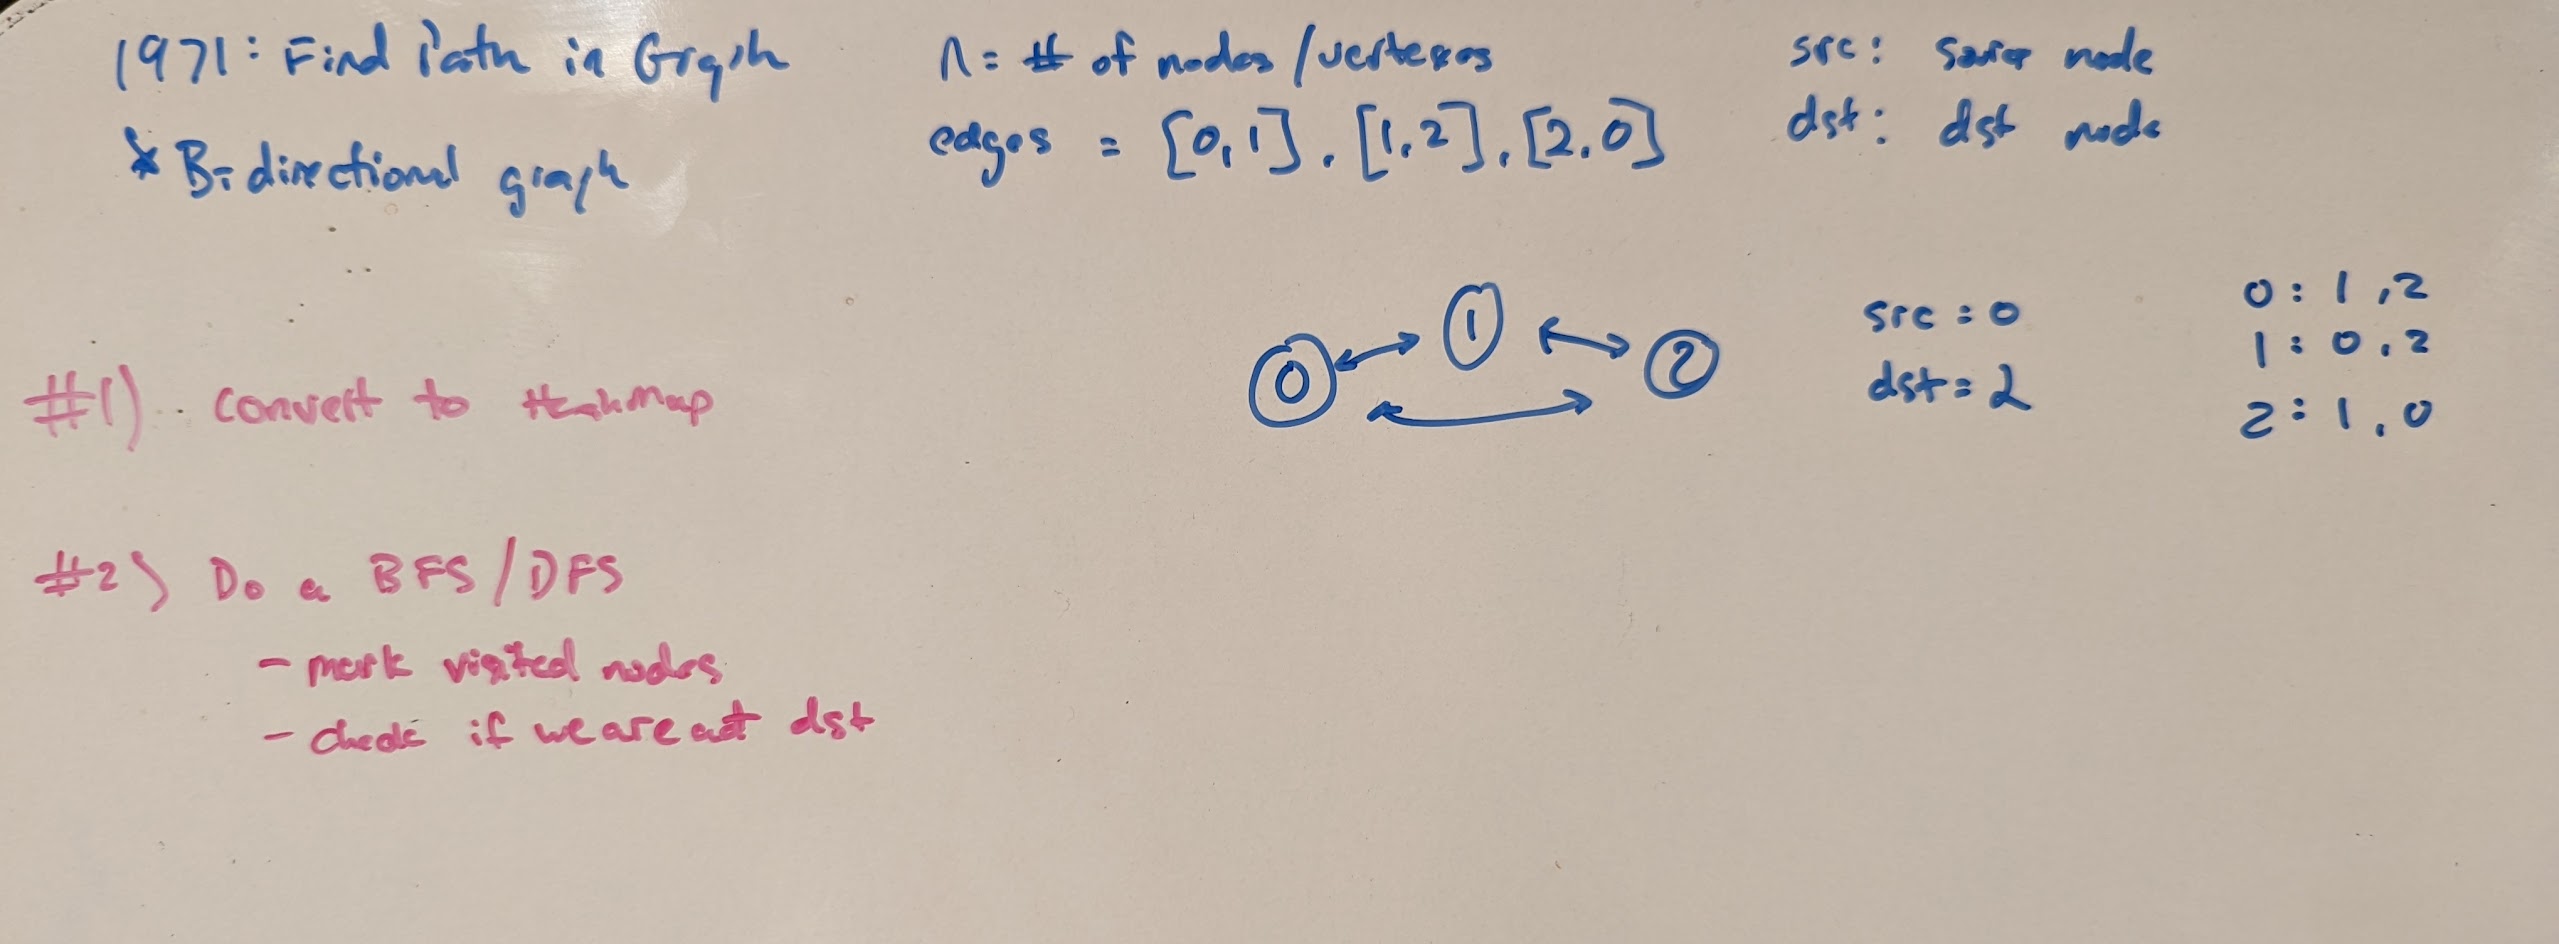 1971: Find Path in Graph
* Bi-directional graph
n = # of nodes/vertexes
edges = [0,1], [1,2], [2,0]
src: source node
dst: dst node
0 1 2
src = 0
dst = 2
0: 1, 2
1: 0, 2
2: 1, 0
#1) Convert to HashMap
#2) Do a BFS/DFS
- mark visited nodes
- check if we are at dst